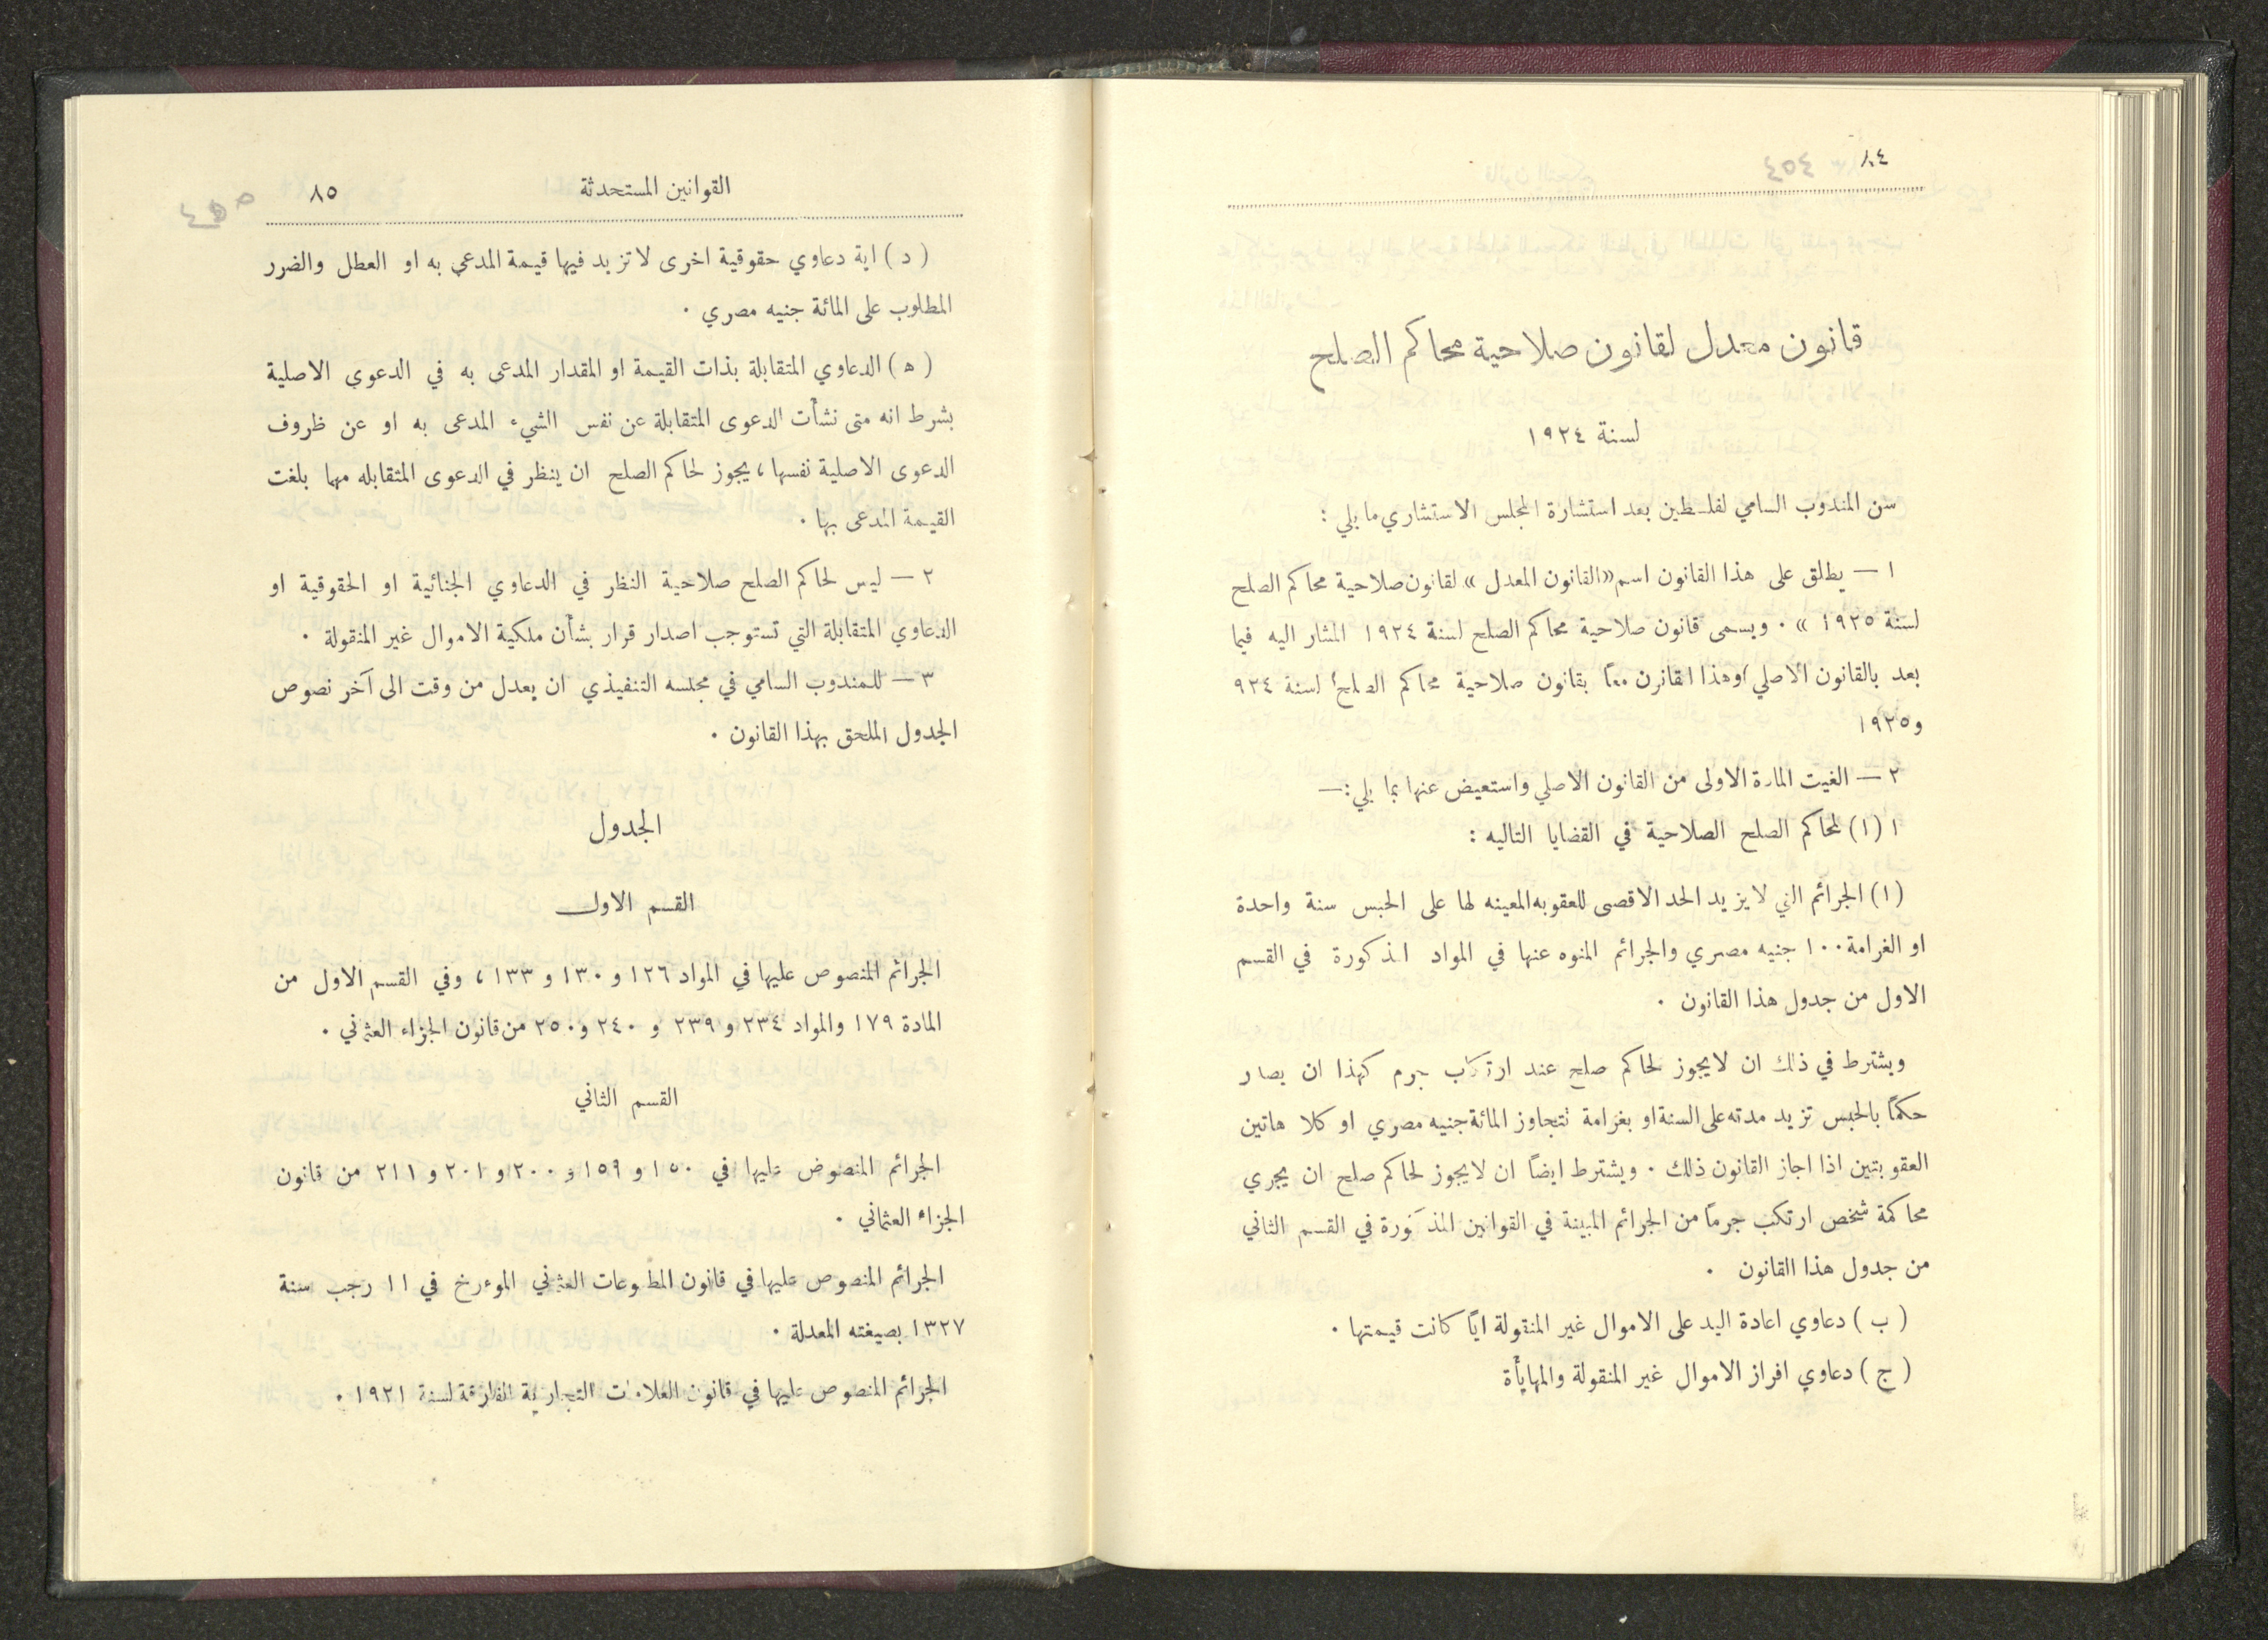 ٨٤
٤٥٤
قانون معدل لقانون صلاحية محاكم الصلح
لسنة ١٩٢٤
سن المندوب السامي لفلسطين بعد استشارة المجلس الاستشاري ما يلي :
١ — يطلق على هذا القانون اسم «القانون المعدل » لقانون صلاحية محاكم الصلح
لسنة ١٩٢٥ » . ويسمى قانون صلاحية محاكم الصلح لسنة ١٩٢٤ المشار اليه فيما
بعد بالقانون الاصلي وهذا القانون معاً بقانون صلاحية محاكم الصلح لسنة ٩٢٤
و١٩٢٥
٢ — الغيت المادة الاولى من القانون الاصلي واستعيض عنها بما يلي :—
١ (١) لمحاكم الصلح الصلاحية في القضايا التاليه :
(١) الجرائم التي لا يزيد الحد الاقصى للعقوبه المعينه لها على الحبس سنة واحدة
او الغرامة ١٠٠ جنيه مصري والجرائم المنوه عنها في المواد المذكورة في القسم
الاول من جدول هذا القانون .
ويشترط في ذلك ان لا يجوز لحاكم صلح عند ارتكاب جرم كهذا ان يصدر
حكماً بالحبس تزيد مدته على السنة او بغرامة تتجاوز المائة جنيه مصري او كلا هاتين
العقوبتين اذا اجاز القانون ذلك . ويشترط ايضاً ان لا يجوز لحاكم صلح ان يجري
محاكمة شخص ارتكب جرماً من الجرائم المبينة في القوانين المذكورة في القسم الثاني
من جدول هذا القانون .
( ب ) دعاوي اعادة اليد على الاموال غير المنقولة اياً كانت قيمتها .
( ج ) دعاوي افراز الاموال غير المنقولة والمهايأة
القوانين المستحدثة ٨٥
( د ) اية دعاوي حقوقية اخرى لا تزيد فيها قيمة المدعى به او العطل والضرر
المطلوب على المائة جنيه مصري .
( ه ) الدعاوي المتقابلة بذات القيمة او المقدار المدعى به في الدعوى الاصلية
بشرط انه متى نشأت الدعوى المتقابلة عن نفس الشيء المدعى به او عن ظروف
الدعوى الاصلية نفسها ، يجوز لحاكم الصلح ان ينظر في الدعوى المتقابله مهما بلغت
القيمة المدعى بها .
٢ — ليس لحاكم الصلح صلاحية النظر في الدعاوي الجنائية او الحقوقية او
الدعاوي المتقابلة التي تستوجب اصدار قرار بشأن ملكية الاموال غير المنقولة .
٣ — للمندوب السامي في مجلسه التنفيذي ان يعدل من وقت الى آخر نصوص
الجدول الملحق بهذا القانون .
الجدول
القسم الاول
الجرائم المنصوص عليها في المواد ١٢٦ و ١٣٠ و ١٣٣ ، وفي القسم الاول من
المادة ١٧٩ والمواد ٢٣٤ و ٢٣٩ و ٢٤٠ و ٢٥٠ من قانون الجزاء العثماني .
القسم الثاني
الجرائم المنصوض عليها في ١٥٠ و ١٥٩ و ٢٠٠ و ٢٠١ و ٢١١ من قانون
الجزاء العثماني .
الجرائم المنصوص عليها في قانون المطبوعات العثماني الموءرخ في ١١ رجب سنة
١٣٢٧ بصيغته المعدلة .
الجرائم المنصوص عليها في قانون العلامات التجارية الفارقة لسنة ١٩٢١ .